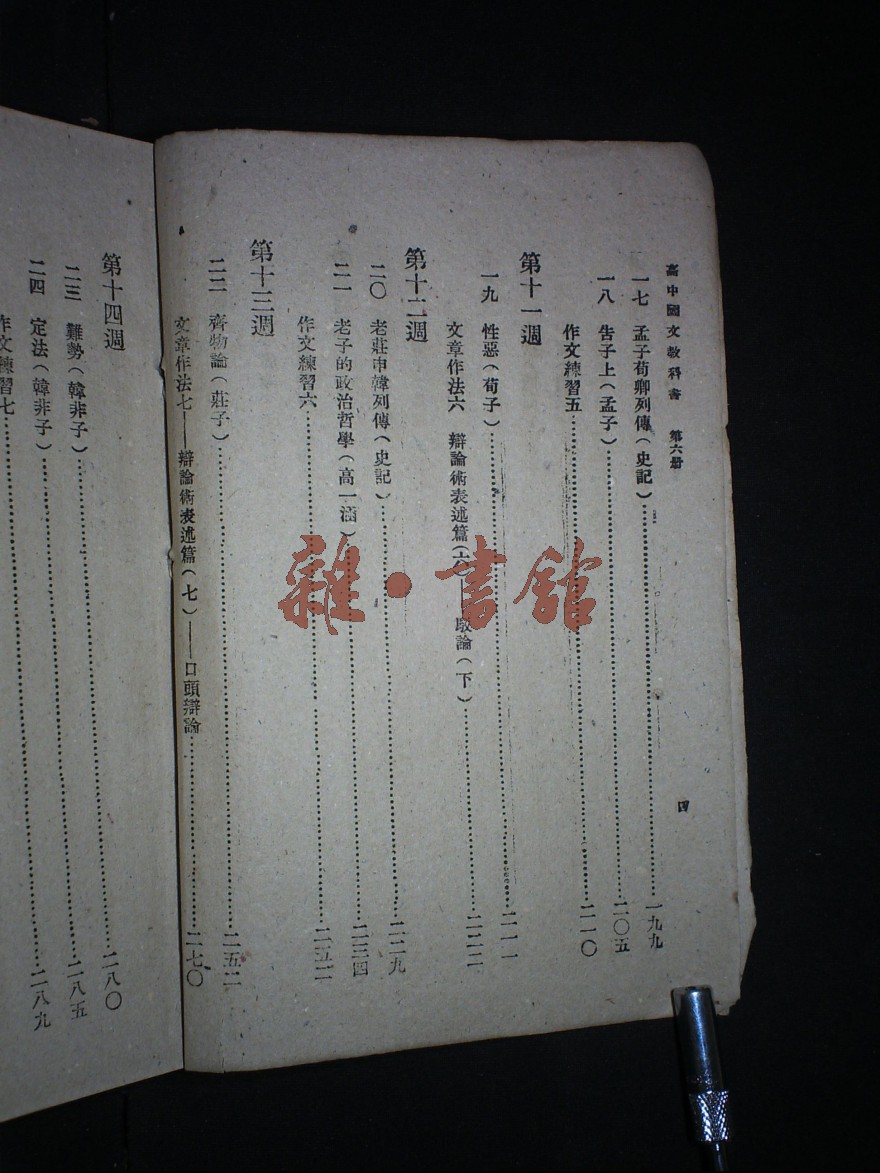 高中國文教科書 第六册
四
一七 孟子荀卿列傳(史記)……一九九
一八 告子上(孟子)……二〇五
作文練習五……二一〇
第十一週
一九 性惡(荀子)……二一一
文章作法六 辯論術表述篇(六)——駁論(下)……二二二
第十二週
二〇 老莊申韓列傳(史記)……二二九
二一 老子的政治哲學(高一涵)……二三四
作文練習六……二五二
第十三週
二二 齊物論(莊子)……二五二
文章作法七——辯論術表述篇(七)——口頭辯論……二七〇
第十四週
二三 難勢(韓非子)……二八〇
二四 定法(韓非子)……二八五
作文練習七……二八九
雜·書館